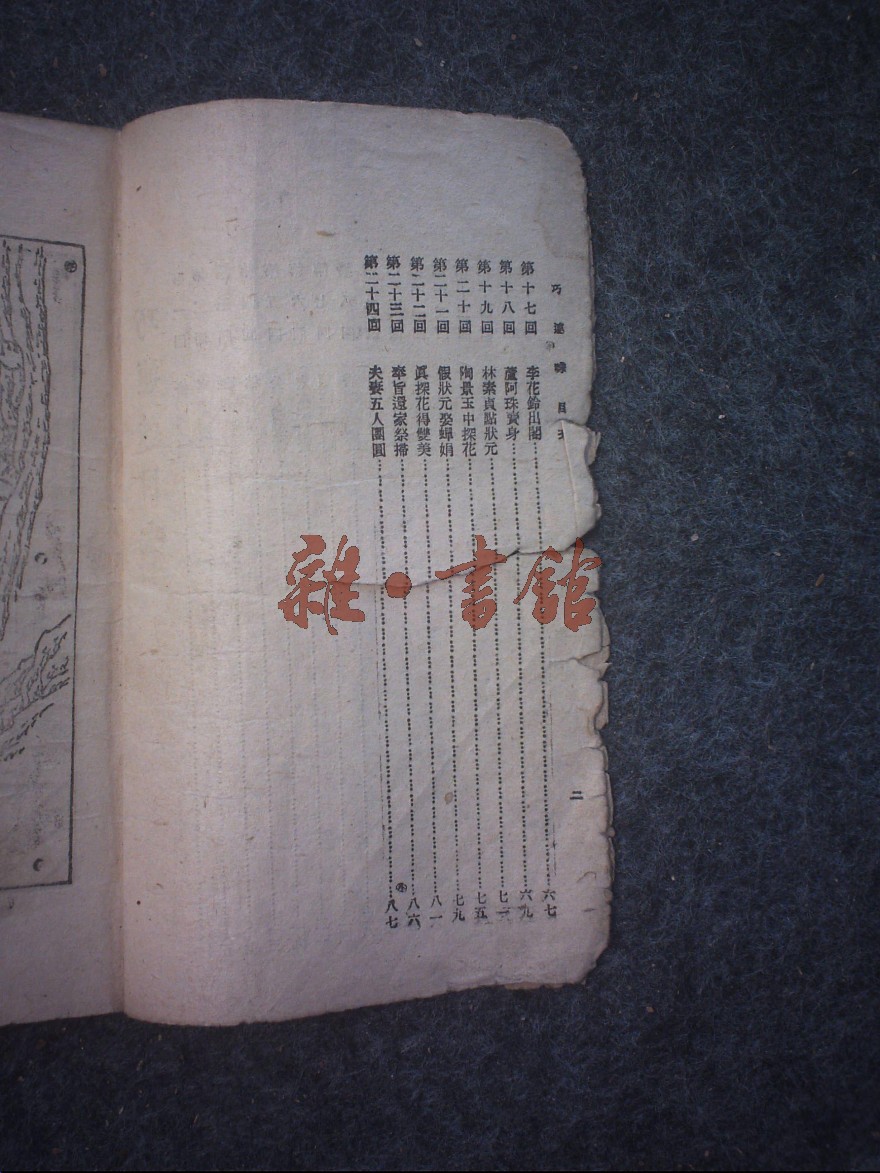 巧 目
第十七回 李花鈴出閣 六七
第十八回 蘆阿珠賣身 六九
第十九回 林素貞點狀元 七一
第二十回 陶景玉中探花 七五
第二十一回 假狀元娶蟬娟 七九
第二十二回 眞探花得雙美 八一
第二十三回 奉旨還家祭掃 八六
第二十四回 夫妻五人團圓 八七
二
雜·書館